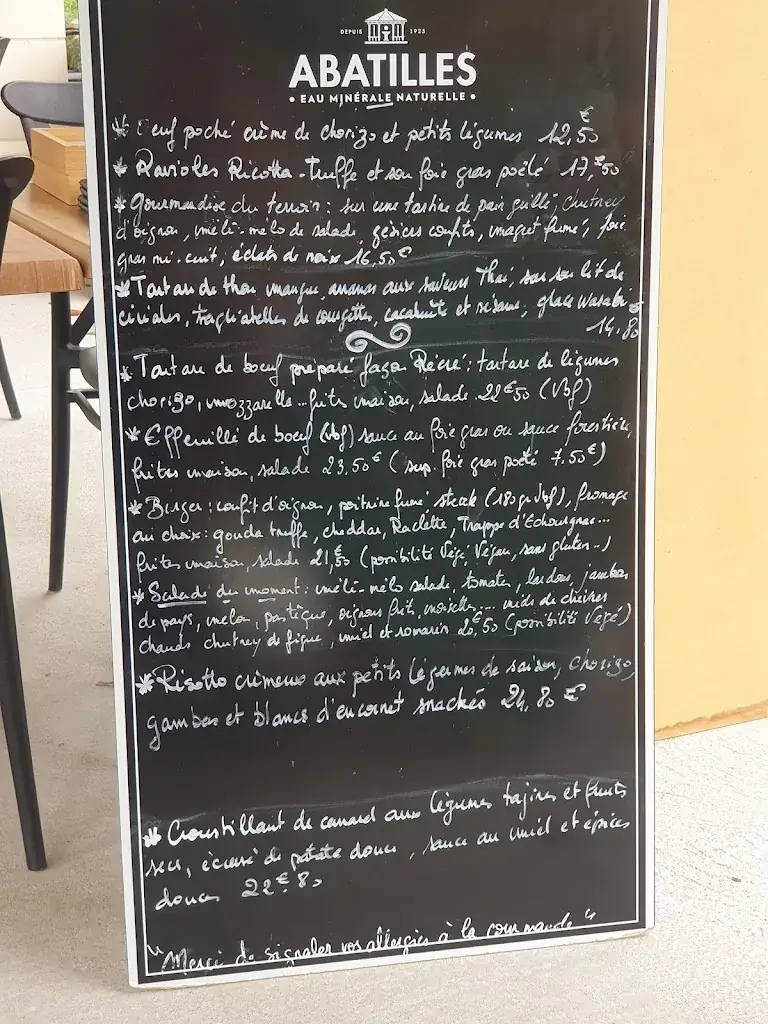 DEPUIS 1925
ABATILLES
• EAU MINÉRALE NATURELLE •
* Oeuf poché crème de chorizo et petits légumes 12,€50
* Ravioles Ricotta-truffe et son foie gras poêlé 17,€50
* Gourmandise du terroir : sur une tartine de pain grillé, chutney
d'oignon, méli-mélo de salade, gésiers confits, magret fumé, foie
gras mi-cuit, éclats de noix 16,50€
* Tartare de thon mangue, ananas aux saveurs Thaï, sur son lit de
crudités, tagliatelles de courgettes, cacahuète et sésame, glace wasabi
14,€80
* Tartare de boeuf préparé façon Récré : tartare de légumes
chorizo, mozzarella...frites maison, salade 22€50 (Vbf)
* Effeuillé de boeuf (vbf) sauce au foie gras ou sauce forestière,
frites maison, salade 23,50€ (sup. foie gras poêlé 7,50€)
* Burger : confit d'oignon, poitrine fumé, steak (180gr Vbf), fromage
au choix : gouda truffe, cheddar, Raclette, Trappe d'Echourgnac...
frites maison, salade 21,€50 (possibilité Végé, Végan, sans gluten..)
* Salade du moment : méli-mélo salade, tomates, lardons, jambon
de pays, melon, pastèque, oignons frits, noisette,... miels de chèvres
chauds chutney de figue, miel et romarin 20,€50 (possibilité Végé)
* Risotto crémeux aux petits légumes de saison, chorizo,
gambas et blancs d'encornet snackés 24,80 €
* Croustillant de canard aux légumes tajines et fruits
secs, écrasé de patate douce, sauce au miel et épices
douces 22€,80
"Merci de signaler vos allergies à la commande"